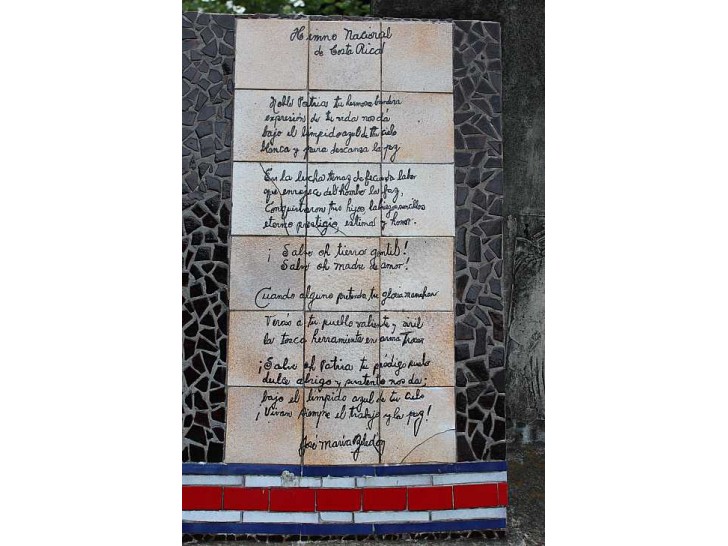 Himno Nacional
de Costa Rica
Noble Patria tu hermosa bandera
expresión de tu vida nos dá
bajo el límpido azul de tu cielo
blanca y pura descanza la paz
En la lucha tenaz de fecunda labor
que enrojece del hombre la faz,
Conquistaron tus hijos labriegos sencillos
eterno prestigio estima y honor.
¡Salve oh tierra gentil!
Salve oh madre de amor!
Cuando alguno pretenda tu gloria manchar
Verás a tu pueblo valiente y viril
la tosca herramienta en arma Trocar
¡Salve oh Patria tu pródigo suelo
dulce abrigo y sustento nos da;
bajo el límpido azul de tu cielo
¡Vivan siempre el trabajo y la paz!
José María